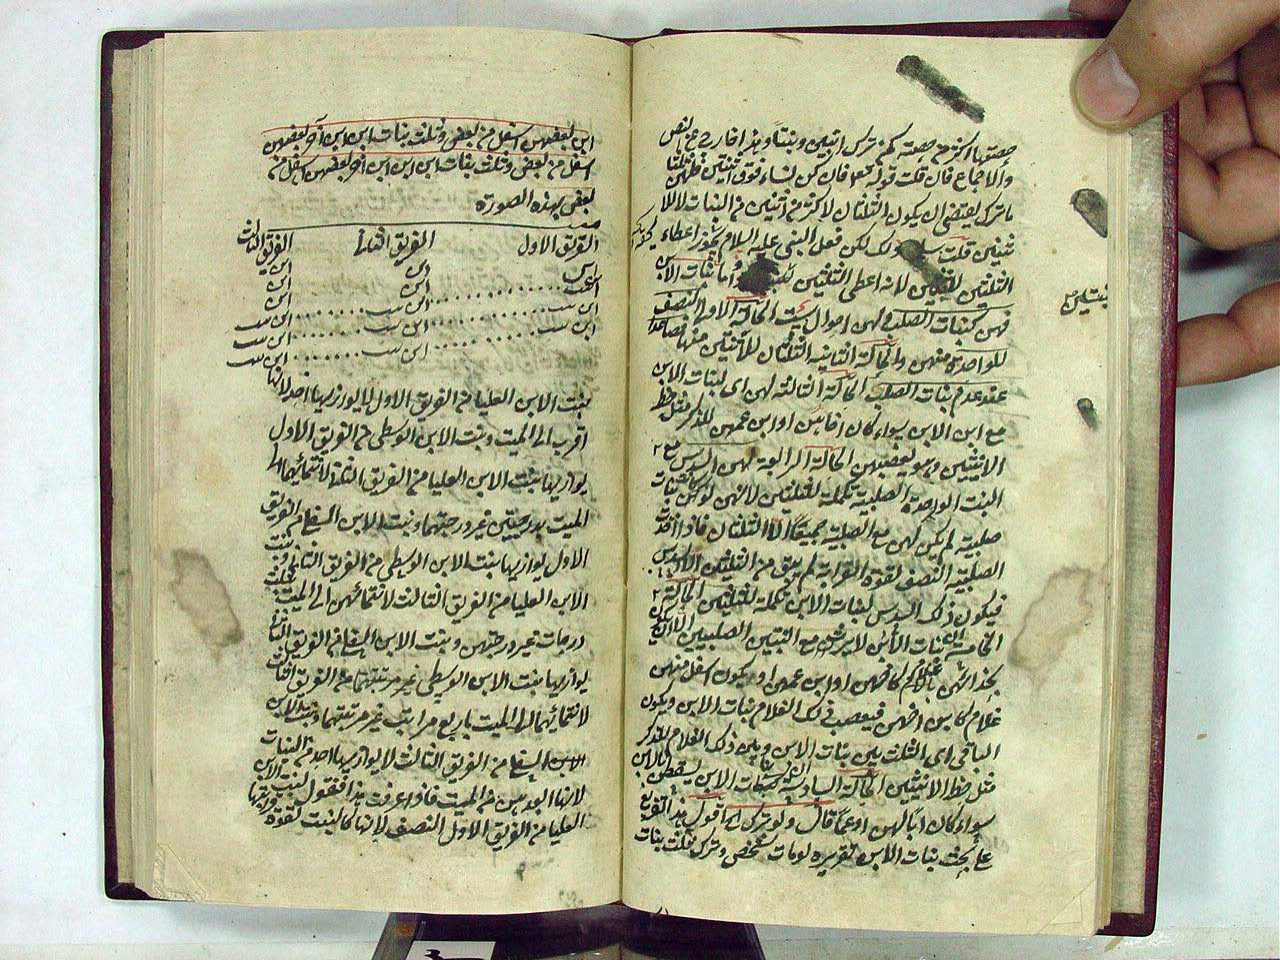 حصتها اكثر من حصته كمن ترك ابنين وبنتا وهذا خارج عن النص
والاجماع فان قلت قوله تعا فان كن نساء فوق اثنتين فلهن ثلثا
ما ترك يقتضى ان يكون الثلثان لاكثر من اثنتين من البنات لا
ثنتين قلت ذلك لكن فعل النبى عليه السلام يجوز اعطاء
الثلثين للبنتين لانه اعطى الثلثين واما بنات الابن
فهن كبنات الصلب ولهن احوال ست الحالة الاولى النصف
للواحدة منهن والحالة الثانية الثلثان للاثنتين منها فصاعدا
عند عدم بنات الصلب الحالة الثالثة لهن اى لبنات الابن
مع ابن الابن سواء كان اخاهن او ابن عمهن للذكر مثل حظ
الانثيين وهو يعصبهن الحالة الرابعة لهن السدس مع
البنت الواحدة الصلبية تكملة للثلثين لانهن لو كن بنات
صلبية لم يكن لهن مع الصلبية جميعا الا الثلثان فاذا اخذت
الصلبية النصف لقوة القرابة لم يبق من الثلثين الا السدس
فيكون ذلك السدس لبنات الابن تكملة للثلثين الحالة
الخامسة بنات الابن لا يرثن مع البنتين الصلبيتين الا ان يكون
بحذائهن غلام كاخهن او ابن عمهن او يكون اسفل منهن
غلام كابن اخهن فيعصب ذلك الغلام بنات الابن ويكون
الباقى اى الثلث بين بنات الابن وبين ذلك الغلام للذكر
مثل حظ الانثيين الحالة السادسة بنات الابن يسقطن بالابن
سواء كان ابا لهن او عما قال ولو ترك اقول هذا تفريع
على بحث بنات الابن تقريره لو مات شخص وترك ثلث بنات
ابن بعضهن اسفل من بعض وثلث بنات ابن ابن آخر بعضهن
اسفل من بعض وثلث بنات ابن ابن ابن آخر بعضهن اسفل من
بعض بهذه الصورة
ميت
الفريق الاول الفريق الثانى الفريق الثالث
ابن ابن ابن
ابن بنت ابن ابن
ابن بنت ابن بنت ابن
ابن بنت ابن بنت ابن بنت
ابن بنت ابن بنت
ابن بنت
بنت الابن العليا من الفريق الاول لا يوازيها احد لانها
اقرب الى الميت وبنت الابن الوسطى من الفريق الاول
يوازيها بنت الابن العليا من الفريق الثانى لانتمائهما الى
الميت بدرجتين غير درجتهما وبنت الابن السفلى من الفريق
الاول يوازيها بنت الابن الوسطى من الفريق الثانى وبنت
الابن العليا من الفريق الثالث لانتمائهن الى الميت بثلث
درجات غير درجتهن وبنت الابن السفلى من الفريق الثانى
يوازيها بنت الابن الوسطى من الفريق الثالث
لانتمائهما الى الميت باربع مراتب غير مرتبتهما وبنت الابن
السفلى من الفريق الثالث لا يوازيها احد من البنات
لانها ابعدهن من الميت فاذا عرفت هذا فنقول لبنت الابن
العليا من الفريق الاول النصف لانها كالبنت لقوة قرابتها